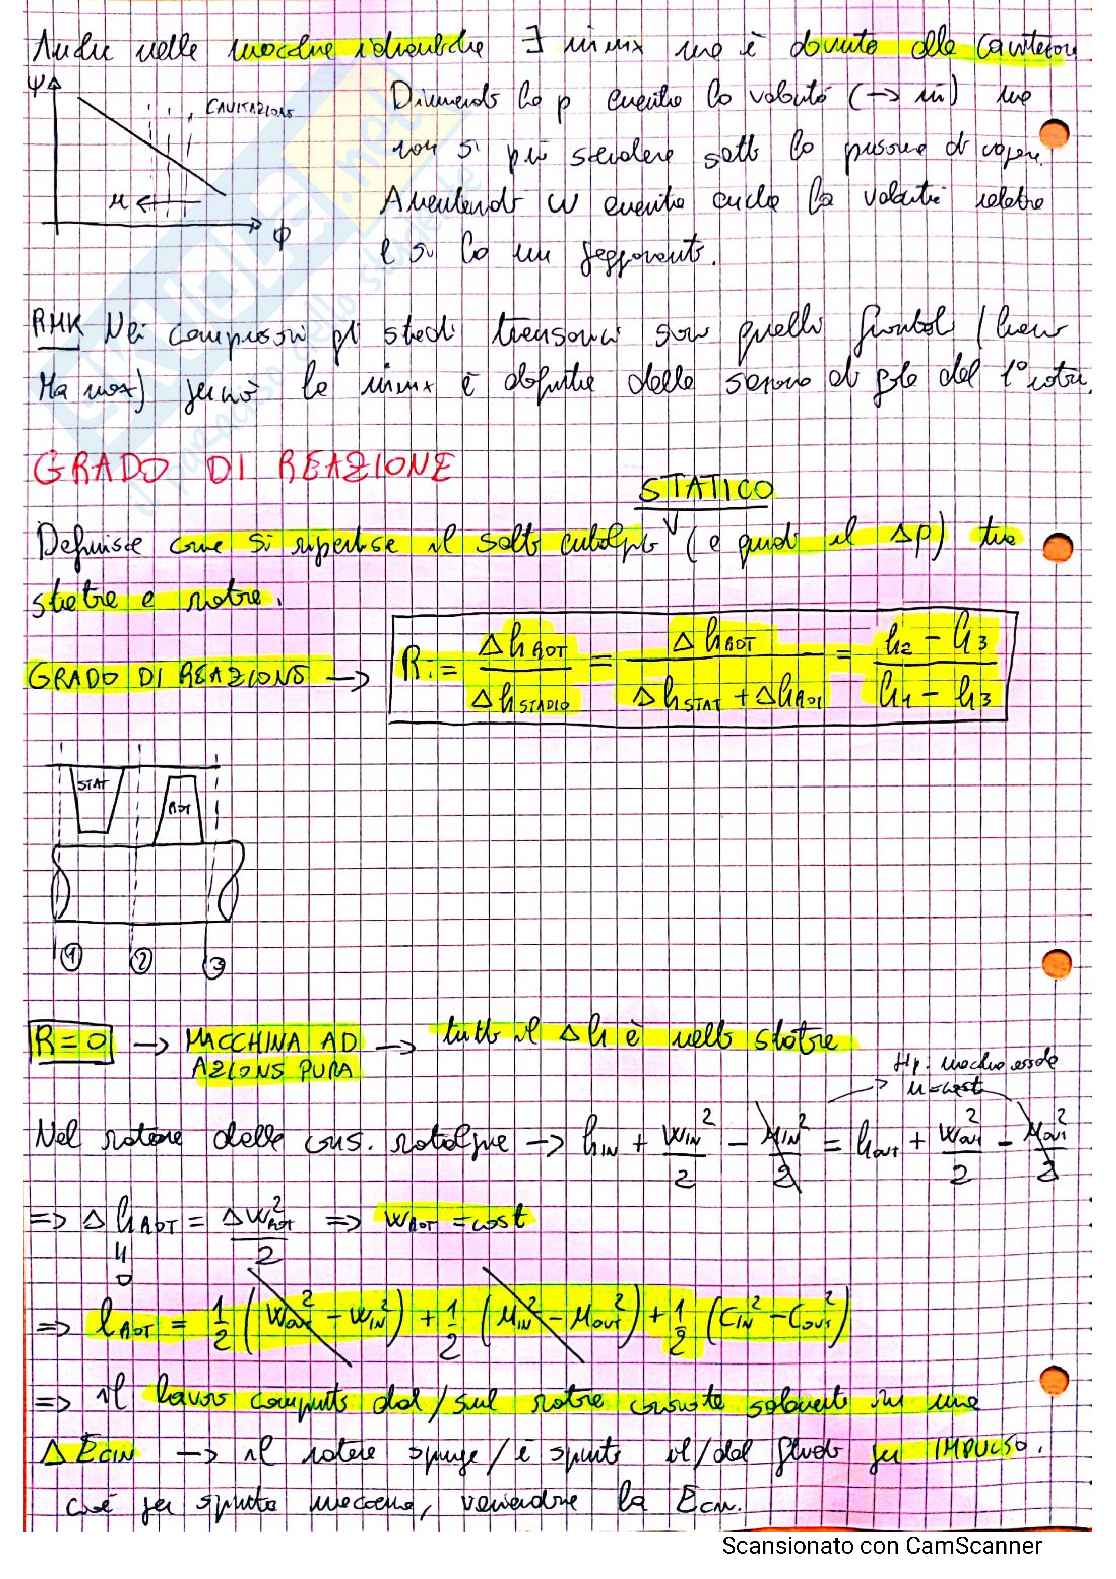 Anche nelle macchine idrauliche ∃ ṁmx ma è dovuto alla cavitazione
ψ
CAVITAZIONE
μ
φ
Diminuendo la p aumenta la velocità (→ ṁ) ma
non si può scendere sotto la pressione di vapore.
Aumentando w aumenta anche la velocità relativa
e si ha un peggioramento.
RMK Nei compressori gli stadi transonici son quelli frontali (hanno
Ma max) perciò la ṁmx è definita dalla sezione di gola del 1° rotore.
GRADO DI REAZIONE
STATICO
Definisce come si ripartisce il salto entalpico (e quindi il Δp) tra
statore e rotore.
GRADO DI REAZIONE → R := Δh ROT / Δh STADIO = Δh ROT / Δh STAT + Δh ROT = h2 - h3 / h1 - h3
STAT
ROT
1 2 3
R=0 → MACCHINA AD AZIONE PURA → tutto il Δh è nello statore
Hp: macchina assiale
u=cost
Nel rotore dalla cons. rotalpia → hIN + wIN²/2 - uIN²/2 = hOUT + wOUT²/2 - uOUT²/2
=> Δh ROT = Δw²ROT/2 => wROT = cost
0
=> lROT = 1/2 (wOUT² - wIN²) + 1/2 (uIN² - uOUT²) + 1/2 (cIN² - cOUT²)
=> il lavoro compiuto dal/sul rotore consiste solamente in una
ΔEcin → il rotore spinge/è spinto il/dal fluido per IMPULSO.
cioè per spinta meccanica, variandone la Ecin.
Scansionato con CamScanner